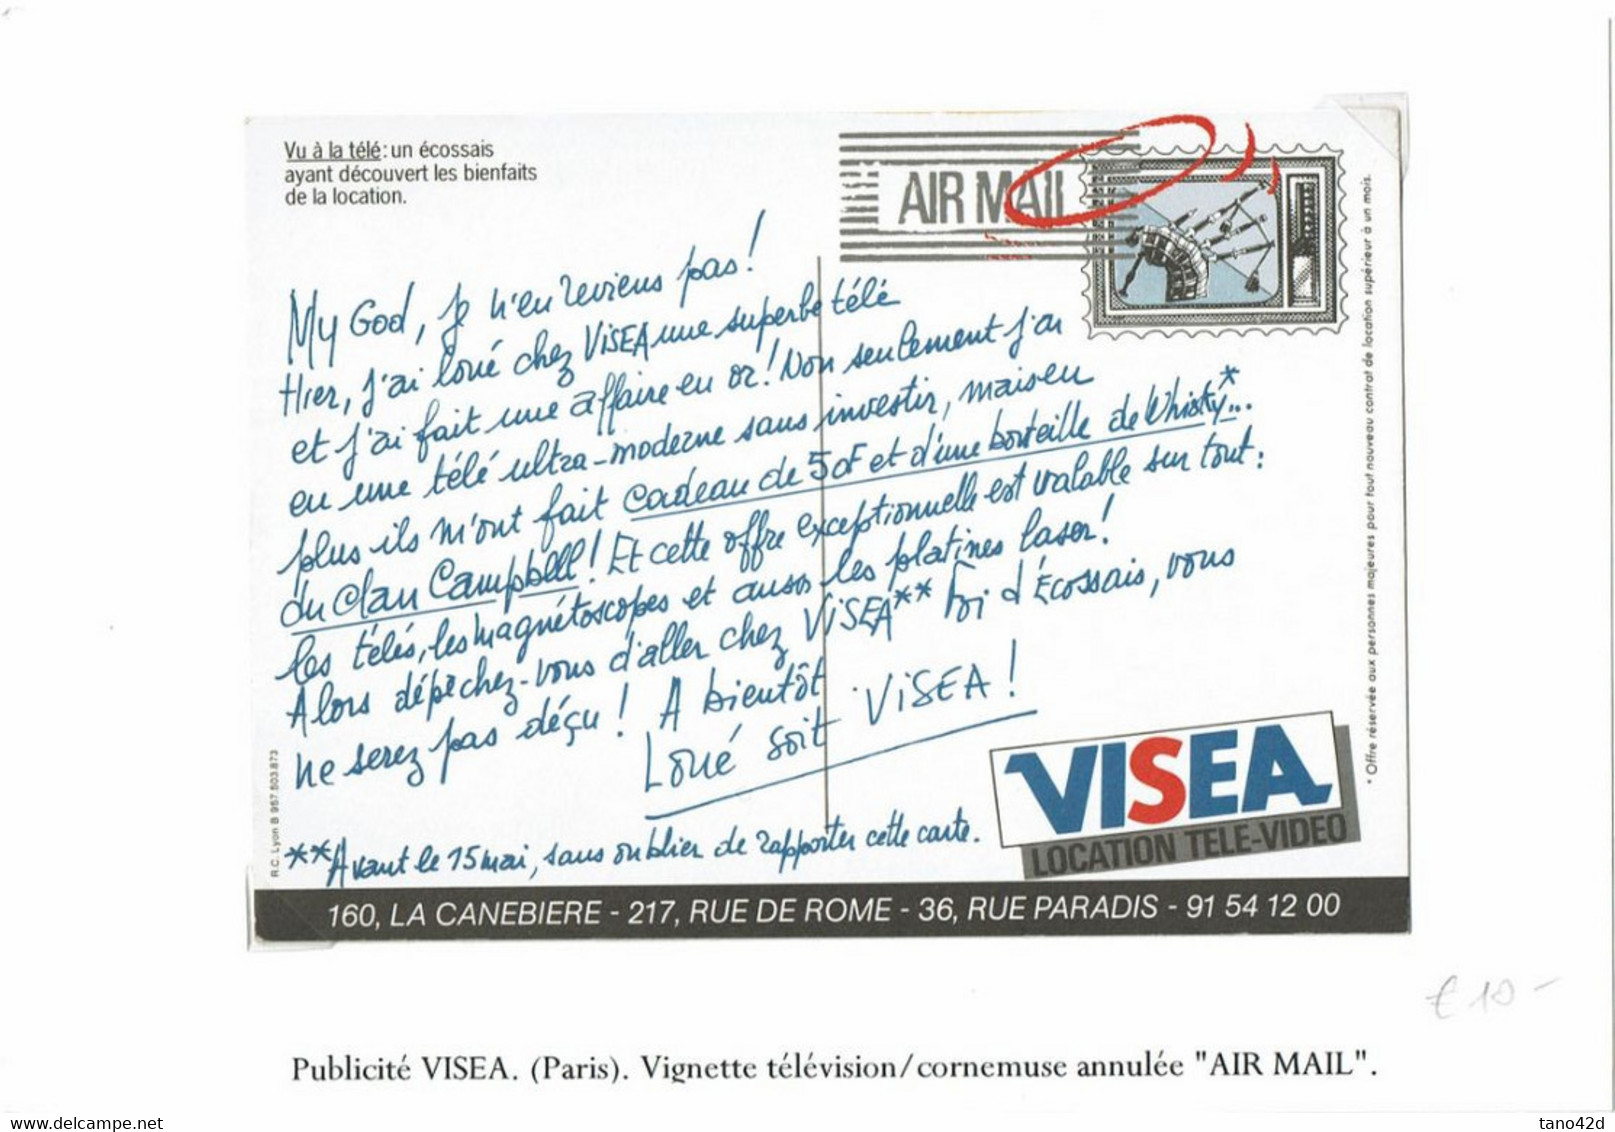 Vu à la télé: un écossais
ayant découvert les bienfaits
de la location.
AIR MAIL
My God, je n'en reviens pas!
Hier, j'ai loué chez ViSEA une superbe télé
et j'ai fait une affaire en or! Non seulement j'ai
eu une télé ultra-moderne sans investir, mais en
plus ils m'ont fait cadeau de 50F et d'une bouteille de Whisky*...
du Clan Campbell! Et cette offre exceptionnelle est valable sur tout:
les télés, les magnétoscopes et aussi les platines laser!
Alors dépêchez-vous d'aller chez ViSEA** Foi d'Écossais, vous
ne serez pas déçu! A bientôt
Loué soit ViSEA!
**Avant le 15 mai, sans oublier de rapporter cette carte.
VISEA
LOCATION TELE-VIDEO
160, LA CANEBIERE - 217, RUE DE ROME - 36, RUE PARADIS - 91 54 12 00
R.C. Lyon B 957.503.873
* Offre réservée aux personnes majeures pour tout nouveau contrat de location supérieur à un mois.
€ 10 -
Publicité VISEA. (Paris). Vignette télévision/cornemuse annulée "AIR MAIL".
tano42d